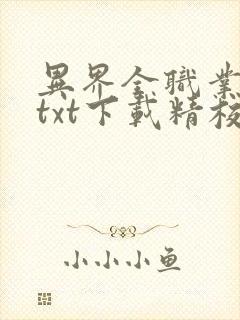 異界全職業
txt下載精校
小小小鱼